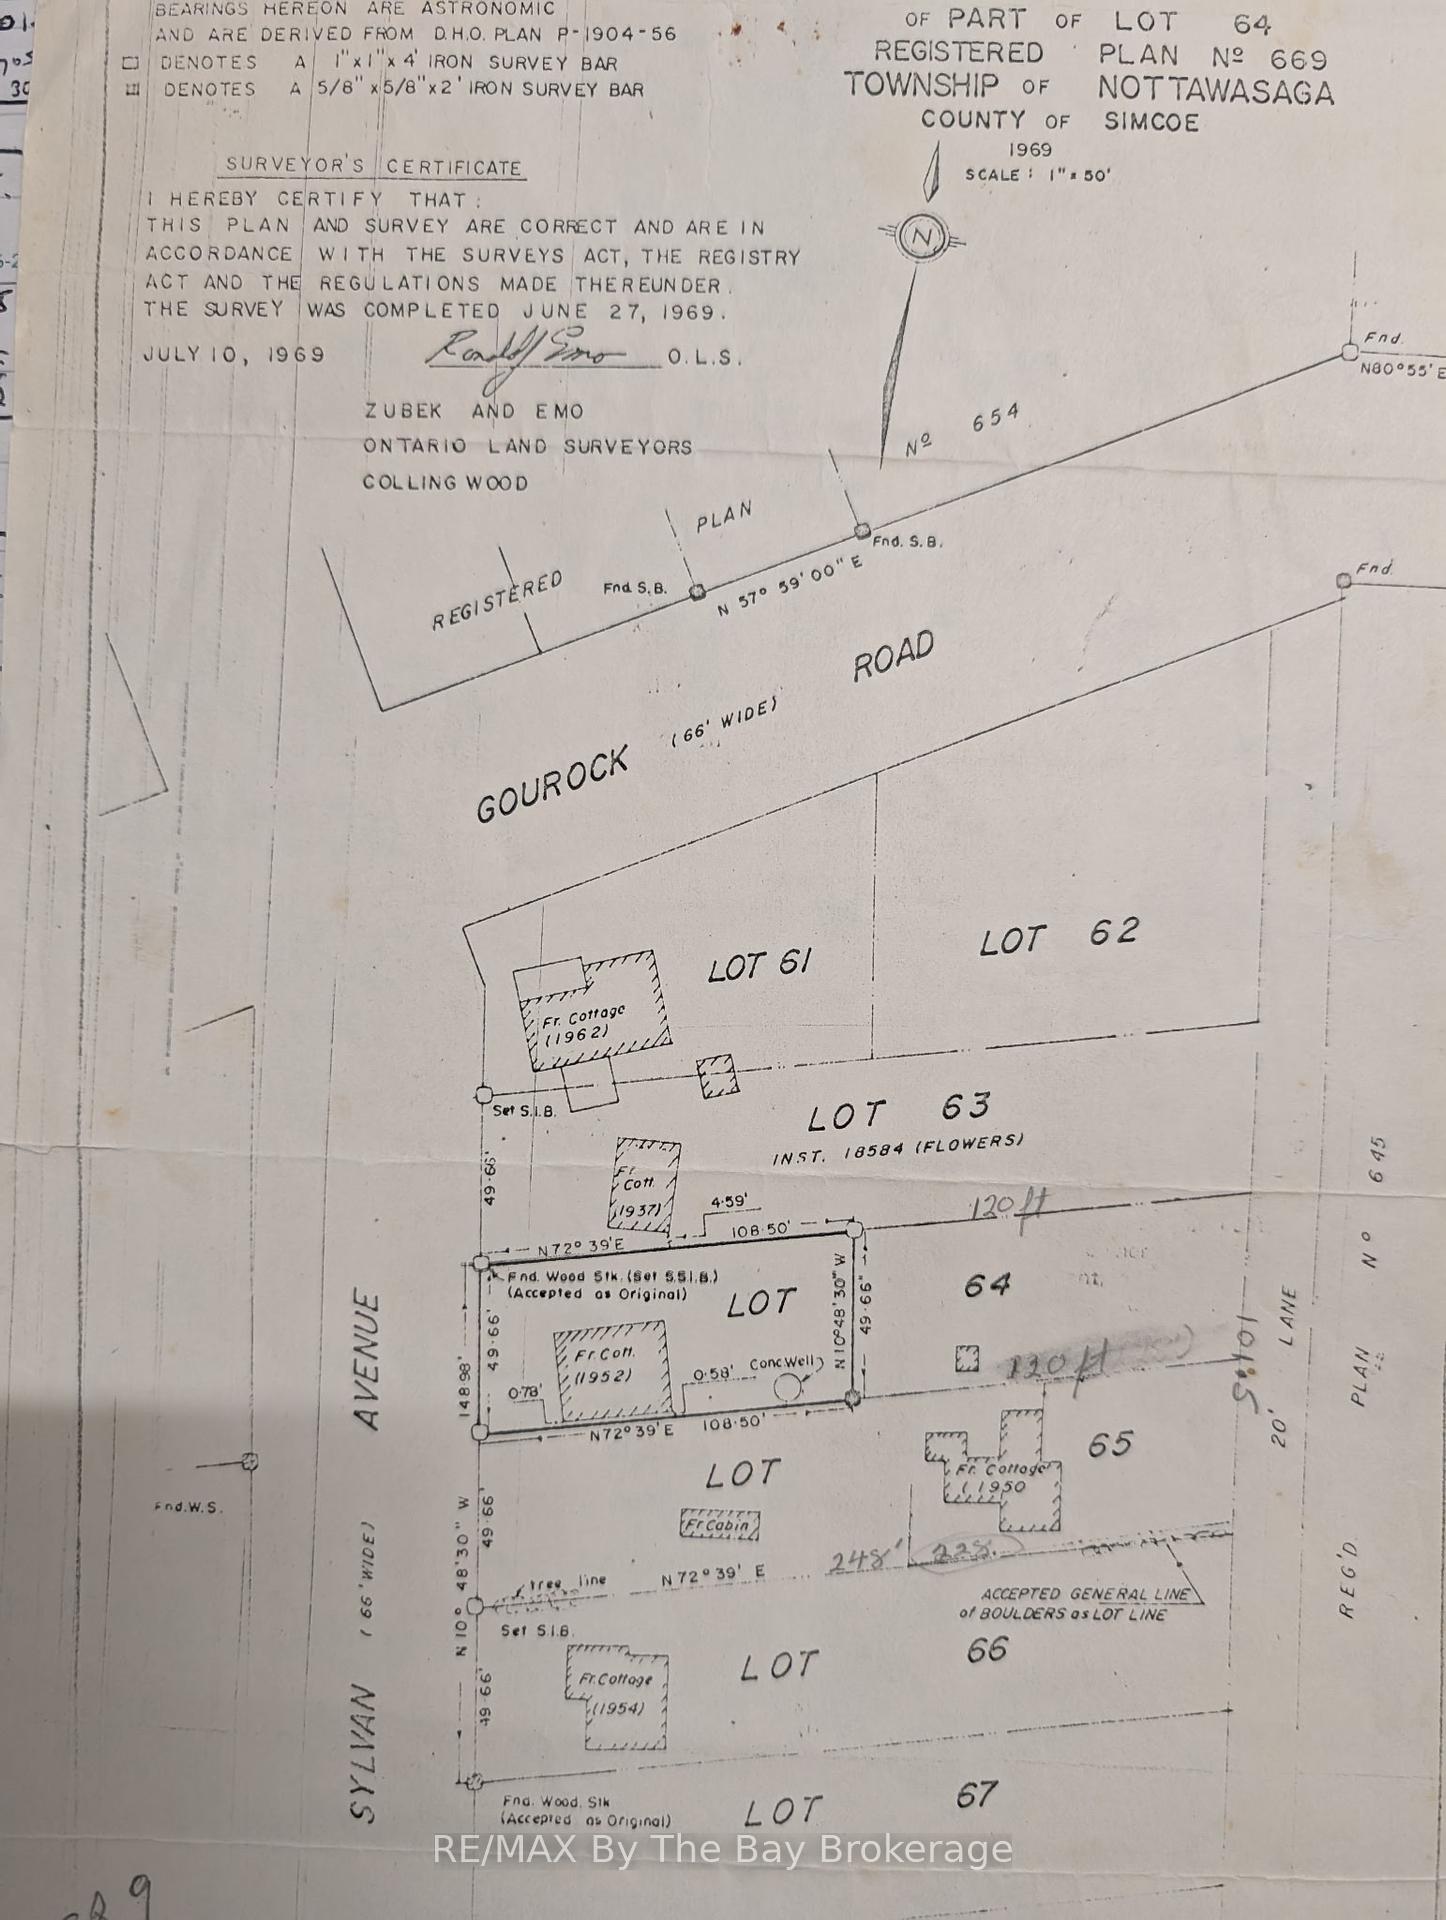 BEARINGS HEREON ARE ASTRONOMIC
AND ARE DERIVED FROM D.H.O. PLAN P-1904-56
DENOTES A 1"x1"x4' IRON SURVEY BAR
DENOTES A 5/8"x5/8"x2' IRON SURVEY BAR
OF PART OF LOT 64
REGISTERED PLAN Nº 669
TOWNSHIP OF NOTTAWASAGA
COUNTY OF SIMCOE
1969
SCALE: 1"=50'
N
SURVEYOR'S CERTIFICATE
I HEREBY CERTIFY THAT:
THIS PLAN AND SURVEY ARE CORRECT AND ARE IN
ACCORDANCE WITH THE SURVEYS ACT, THE REGISTRY
ACT AND THE REGULATIONS MADE THEREUNDER.
THE SURVEY WAS COMPLETED JUNE 27, 1969.
JULY 10, 1969
O.L.S.
ZUBEK AND EMO
ONTARIO LAND SURVEYORS
COLLINGWOOD
REGISTERED PLAN Nº 654
Fnd.
N80°55'E
Fnd. S.B.
Fnd. S.B.
N 57° 59' 00" E
Fnd.
GOUROCK (66' WIDE) ROAD
LOT 61
LOT 62
Fr. Cottage
(1962)
Set S.I.B.
LOT 63
INST. 18584 (FLOWERS)
49.66'
Fr.
Cott.
(1937)
4.59'
N72° 39'E
108.50'
120ft
Fnd. Wood Stk. (Set S.S.I.B.)
(Accepted as Original)
LOT 64
N10°48'30" W
49.66'
148.98'
49.66'
Fr. Cott.
(1952)
0.78'
0.58'
Conc.Well
120ft
N72° 39' E
108.50'
LOT 65
Fr. Cottage
(1950
Fr Cabin
49.66'
N 10° 48' 30" W
tree line
N 72° 39' E
248'
228.
ACCEPTED GENERAL LINE
of BOULDERS as LOT LINE
Set S.I.B.
LOT 66
Fr. Cottage
(1954)
49.66'
Fnd. Wood. Stk
(Accepted as Original)
LOT 67
Fnd. W.S.
SYLVAN (66' WIDE) AVENUE
20' LANE
REG'D PLAN Nº 645
RE/MAX By The Bay Brokerage